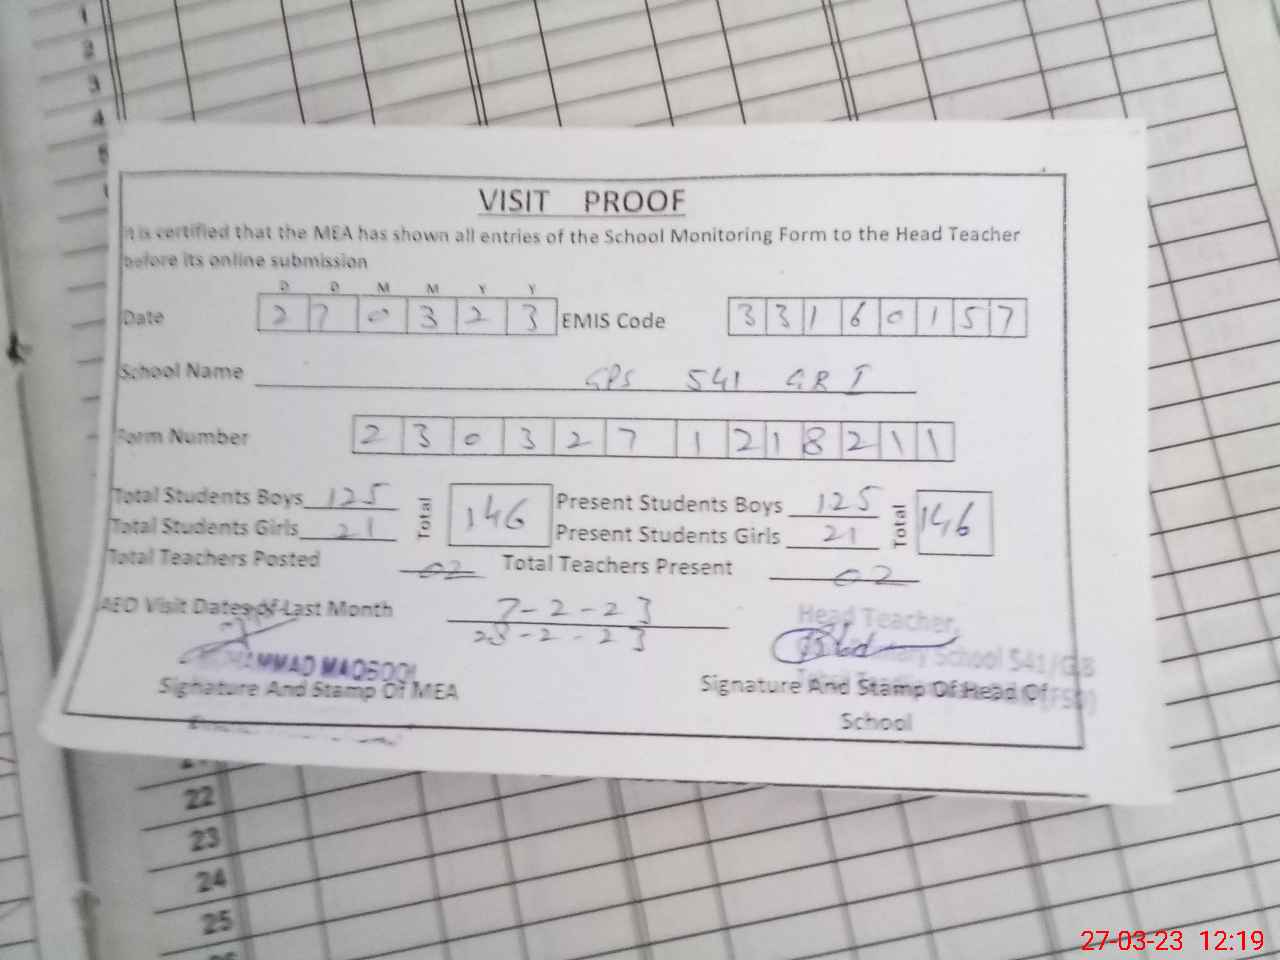 1
2
3
4
5
VISIT PROOF
It is certified that the MEA has shown all entries of the School Monitoring Form to the Head Teacher
before its online submission
D D M M Y Y
Date 2 7 0 3 2 3 EMIS Code 3 3 1 6 0 1 5 7
School Name GPS 541 GR I
Form Number 2 3 0 3 2 7 1 2 1 8 2 1 1
Total Students Boys 125 Total 146 Present Students Boys 125 Total 146
Total Students Girls 21 Present Students Girls 21
Total Teachers Posted 02 Total Teachers Present 02
AEO Visit Dates of Last Month 7-2-23
28-2-23
Head Teacher,
MUHAMMAD MAQBOOL
Primary School 541/G.B
Signature And Stamp Of MEA Signature And Stamp Of Head Of
School
22
23
24
25
27-03-23 12:19